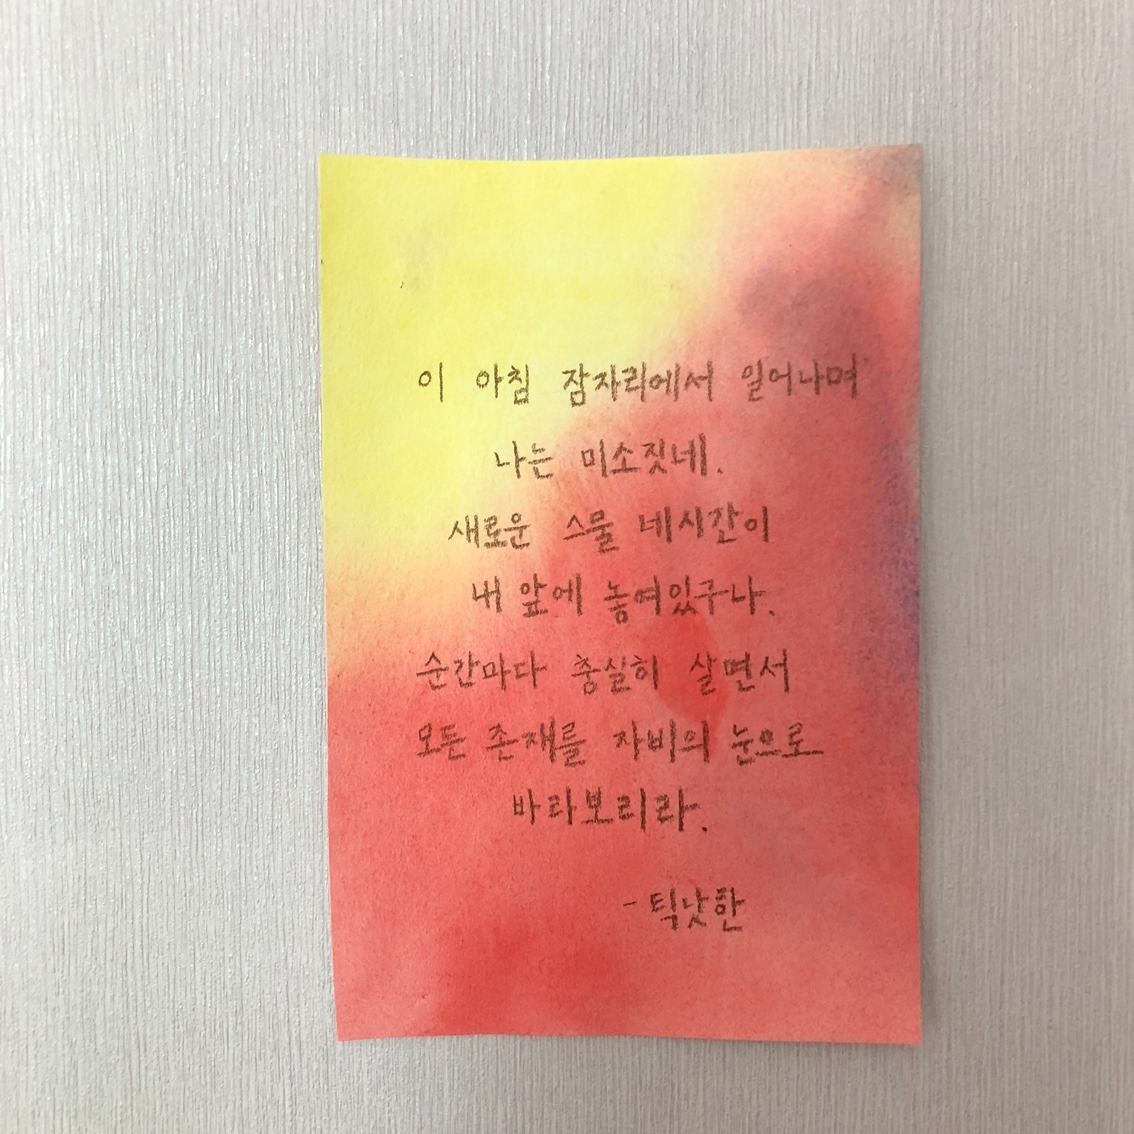 이 아침 잠자리에서 일어나며
나는 미소짓네.
새로운 스물 네시간이
내 앞에 놓여있구나.
순간마다 충실히 살면서
모든 존재를 자비의 눈으로
바라보리라.
- 틱낫한